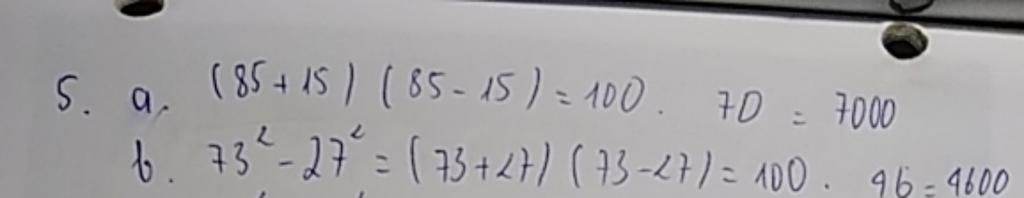 5. a. (85+15) (85-15) = 100. 70 = 7000
b. 73² - 27² = (73+27) (73-27) = 100. 46 = 4600